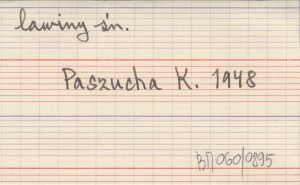 lawiny śn.
Paszucha K. 1948
ВП 060/0895